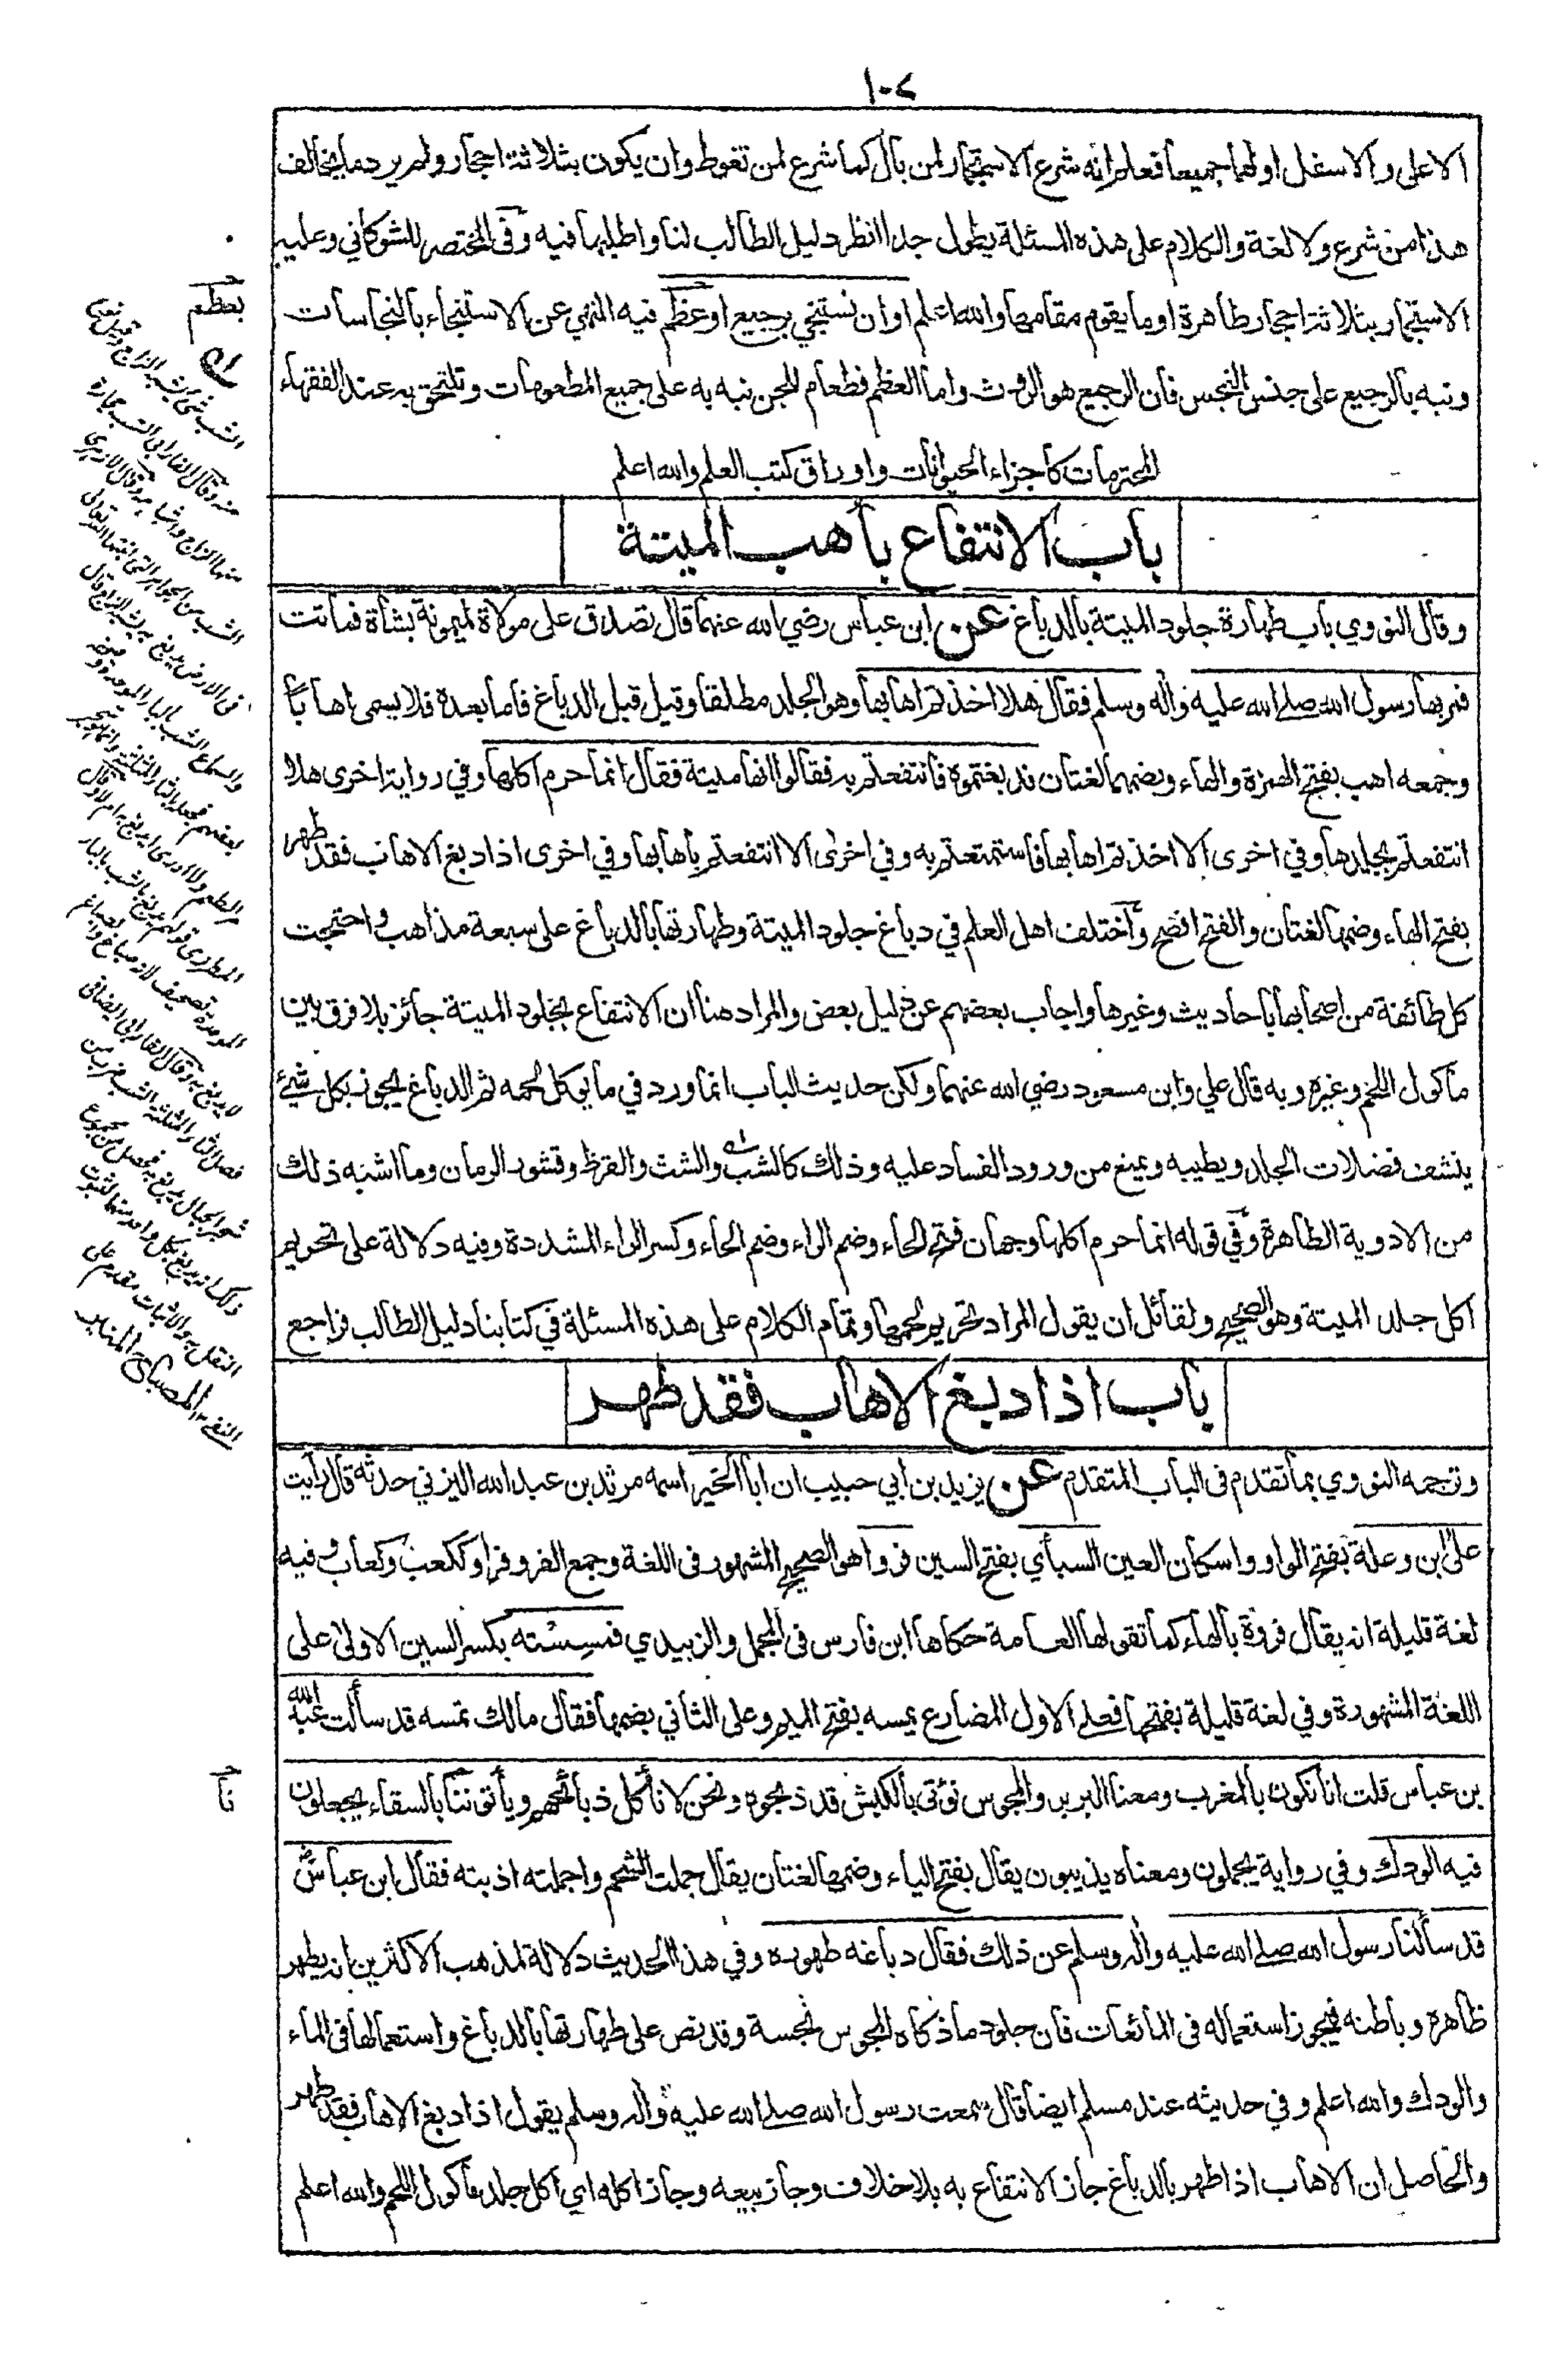 ١٠٧
الاعلى والاسفل اولهما جميعا فعلم انه شرع الاستجمار لمن بال كما شرع لمن تغوط وان يكون بثلاثة احجار ولم يرد ما يخالف
هذا من شرع ولا لغة والكلام على هذه المسئلة يطول جدا انظر دليل الطالب لنا واطلبها فيه وفى المختصر للشوكاني وعليه
الاستجمار بثلاثة احجار طاهرة او ما يقوم مقامها والله اعلم او ان نستنجي برجيع او عظم فيه النهي عن الاستنجاء بالنجاسات
بعظم
ونبه بالرجيع على جنس النجس فان الرجيع هو الروث واما العظم فطعام للجن نبه به على جميع المطعومات وتلتحق به عند الفقهاء
المحترمات كاجزاء الحيوانات واوراق كتب العلم والله اعلم
باب الانتفاع بأهب الميتة
وقال النووي باب طهارة جلود الميتة بالدباغ عن ابن عباس رضي الله عنهما قال تصدق على مولاة لميمونة بشاة فماتت
فمر بها رسول الله صلے الله عليه واٰله وسلم فقال هلا اخذتم اهابها وهو الجلد مطلقا وقيل قبل الدباغ فاما بعده فلا يسمى اهابا
وجمعه اهب بفتح الهمزة والهاء وبضمهما لغتان فدبغتموه فانتفعتم به فقالوا انها ميتة فقال انما حرم اكلها وفي رواية اخرى هلا
انتفعتم بجلدها وفي اخرى الا اخذتم اهابها فاستمتعتم به وفي اخرى الا انتفعتم باهابها وفي اخرى اذا دبغ الاهاب فقد طهر
بفتح الهاء وضمها لغتان والفتح افصح واختلف اهل العلم في دباغ جلود الميتة وطهارتها بالدباغ على سبعة مذاهب واحتجت
كل طائفة من اصحابها باحاديث وغيرها واجاب بعضهم عن دليل بعض والمراد هنا ان الانتفاع بجلود الميتة جائز بلا فرق بين
ماكول اللحم وغيره وبه قال علي وابن مسعود رضي الله عنهما ولكن حديث الباب انما ورد في ما يوكل لحمه ثم الدباغ يجوز بكل شيئ
ينشف فضلات الجلد ويطيبه ويمنع من ورود الفساد عليه وذلك كالشب والشث والقرظ وقشور الرمان وما اشبه ذلك
من الادوية الطاهرة وفي قوله انما حرم اكلها وجهان فتح الحاء وضم الراء وضم الحاء وكسر الراء المشددة وفيه دلالة على تحريم
اكل جلد الميتة وهو الصحيح ولقائل ان يقول المراد تحريم لحمها وتمام الكلام على هذه المسئلة في كتابنا دليل الطالب فراجع
باب اذا دبغ الاهاب فقد طهر
وترجمه النووي بما تقدم فى الباب المتقدم عن يزيد بن ابي حبيب ان ابا الخير اسمه مرثد بن عبد الله اليزني حدثه قال رأيت
على ابن وعلة بفتح الواو واسكان العين السبأي بفتح السين فروا هو الصحيح المشهور فى اللغة وجمع الفرو فرا وككعب وكعاب وفيه
لغة قليلة انه يقال فروة بالهاء كما تقولها العامة حكاها ابن فارس فى المجمل والزبيدي فمسِسْته بكسر السين الاولىٰ على
اللغة المشهورة وفي لغة قليلة بفتحها فعلے الاول المضارع يمسه بفتح الميم وعلى الثاني بضمها فقال مالك تمسه قد سألت عبد الله
بن عباس قلت انا نكون بالمغرب ومعنا البربر والمجوس نؤتى بالكبش قد ذبحوه ونحن لا نأكل ذبائحهم ويأتوننا بالسقاء يجعلون
نا
فيه الودك وفي رواية يجملون ومعناه يذيبون يقال بفتح الياء وضمها لغتان يقال جملت الشحم واجملته اذبته فقال ابن عباسؓ
قد سألنا رسول الله صلے الله عليه واٰله وسلم عن ذلك فقال دباغه طهوره وفي هذا الحديث دلالة لمذهب الاكثرين انه يطهر
ظاهره وباطنه فيجوز استعماله فى المائعات فان جلود ما ذكاه المجوس نجسة وقد نص على طهارتها بالدباغ واستعمالها فى الماء
والودك والله اعلم وفي حديثه عند مسلم ايضا قال سمعت رسول الله صلے الله عليه واٰله وسلم يقول اذا دبغ الاهاب فقد طهر
والحاصل ان الاهاب اذا طهر بالدباغ جاز الانتفاع به بلا خلاف وجاز بيعه وجاز اكله اي اكل جلد ماكول اللحم والله اعلم